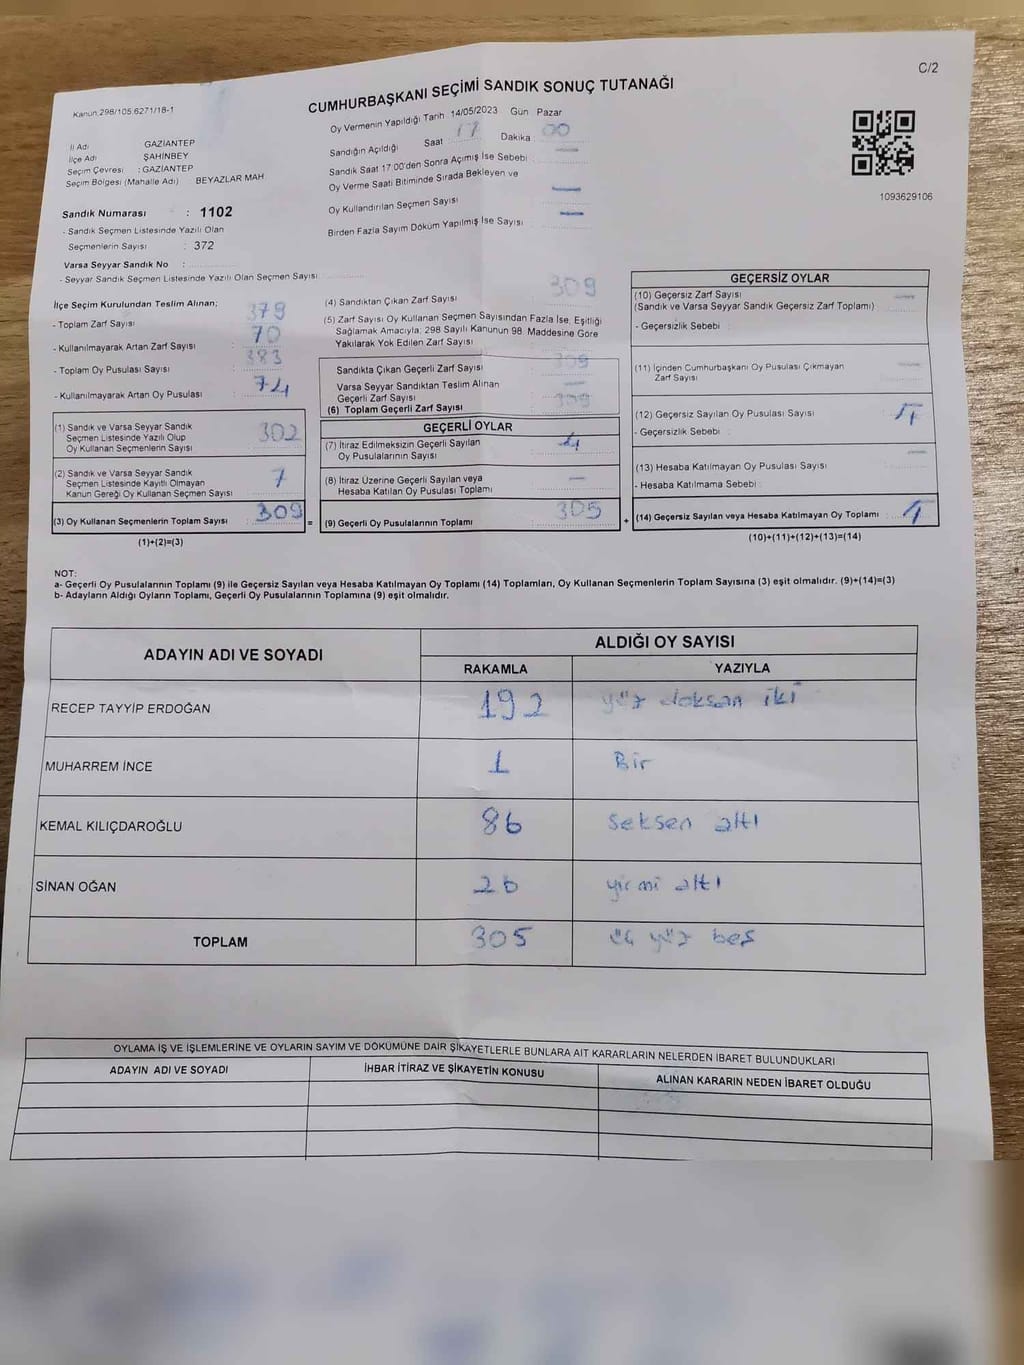 C/2
Kanun.298/105.6271/18-1
CUMHURBAŞKANI SEÇİMİ SANDIK SONUÇ TUTANAĞI
Oy Vermenin Yapıldığı Tarih 14/05/2023 Gün Pazar
Sandığın Açıldığı Saat 17 Dakika 00
Sandık Saat 17:00'den Sonra Açımış İse Sebebi : —
Oy Verme Saati Bitiminde Sırada Bekleyen ve
Oy Kullandırılan Seçmen Sayısı —
Birden Fazla Sayım Döküm Yapılmış İse Sayısı —
İl Adı GAZİANTEP
İlçe Adı ŞAHİNBEY
Seçim Çevresi : GAZİANTEP
Seçim Bölgesi (Mahalle Adı) : BEYAZLAR MAH
1093629106
Sandık Numarası : 1102
- Sandık Seçmen Listesinde Yazılı Olan
Seçmenlerin Sayısı : 372
Varsa Seyyar Sandık No :
- Seyyar Sandık Seçmen Listesinde Yazılı Olan Seçmen Sayısı :
İlçe Seçim Kurulundan Teslim Alınan;
- Toplam Zarf Sayısı : 379
- Kullanılmayarak Artan Zarf Sayısı : 70
- Toplam Oy Pusulası Sayısı : 383
- Kullanılmayarak Artan Oy Pusulası : 74
(1) Sandık ve Varsa Seyyar Sandık
Seçmen Listesinde Yazılı Olup
Oy Kullanan Seçmenlerin Sayısı 302
(2) Sandık ve Varsa Seyyar Sandık
Seçmen Listesinde Kayıtlı Olmayan
Kanun Gereği Oy Kullanan Seçmen Sayısı 7
(3) Oy Kullanan Seçmenlerin Toplam Sayısı : 309
(1)+(2)=(3)
(4) Sandıktan Çıkan Zarf Sayısı 309
(5) Zarf Sayısı Oy Kullanan Seçmen Sayısından Fazla İse, Eşitliği
Sağlamak Amacıyla, 298 Sayılı Kanunun 98. Maddesine Göre
Yakılarak Yok Edilen Zarf Sayısı
Sandıkta Çıkan Geçerli Zarf Sayısı : 309
Varsa Seyyar Sandıktan Teslim Alınan
Geçerli Zarf Sayısı : —
(6) Toplam Geçerli Zarf Sayısı : 309
GEÇERLİ OYLAR
(7) İtiraz Edilmeksizin Geçerli Sayılan
Oy Pusulalarının Sayısı : 4
(8) İtiraz Üzerine Geçerli Sayılan veya
Hesaba Katılan Oy Pusulası Toplamı : —
= (9) Geçerli Oy Pusulalarının Toplamı : 305
GEÇERSİZ OYLAR
(10) Geçersiz Zarf Sayısı
(Sandık ve Varsa Seyyar Sandık Geçersiz Zarf Toplamı) : —
- Geçersizlik Sebebi :
(11) İçinden Cumhurbaşkanı Oy Pusulası Çıkmayan
Zarf Sayısı : —
(12) Geçersiz Sayılan Oy Pusulası Sayısı :
- Geçersizlik Sebebi :
(13) Hesaba Katılmayan Oy Pusulası Sayısı : —
- Hesaba Katılmama Sebebi :
+ (14) Geçersiz Sayılan veya Hesaba Katılmayan Oy Toplamı :
(10)+(11)+(12)+(13)=(14)
NOT:
a- Geçerli Oy Pusulalarının Toplamı (9) ile Geçersiz Sayılan veya Hesaba Katılmayan Oy Toplamı (14) Toplamları, Oy Kullanan Seçmenlerin Toplam Sayısına (3) eşit olmalıdır. (9)+(14)=(3)
b- Adayların Aldığı Oyların Toplamı, Geçerli Oy Pusulalarının Toplamına (9) eşit olmalıdır.
ADAYIN ADI VE SOYADI ALDIĞI OY SAYISI
RAKAMLA YAZIYLA
RECEP TAYYİP ERDOĞAN 192 yüz doksan iki
MUHARREM İNCE 1 Bir
KEMAL KILIÇDAROĞLU 86 seksen altı
SİNAN OĞAN 26 yirmi altı
TOPLAM 305 üç yüz beş
OYLAMA İŞ VE İŞLEMLERİNE VE OYLARIN SAYIM VE DÖKÜMÜNE DAİR ŞİKAYETLERLE BUNLARA AİT KARARLARIN NELERDEN İBARET BULUNDUKLARI
ADAYIN ADI VE SOYADI İHBAR İTİRAZ VE ŞİKAYETİN KONUSU ALINAN KARARIN NEDEN İBARET OLDUĞU